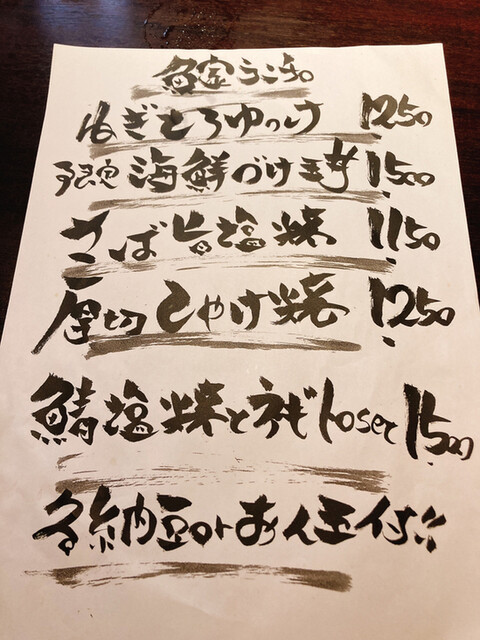 魚家らんち。
ねぎとろゆっけ 1250
海鮮づけ丼 1500
さば旨塩焼 1150
厚切しゃけ焼 1250
鯖塩焼とネギトロset 1500
各納豆orおん玉付!!